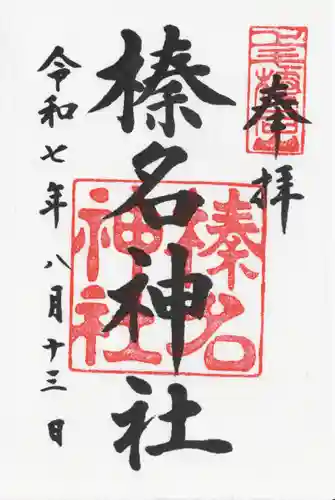 奉拝
榛名神社
令和七年八月十三日
榛名神社